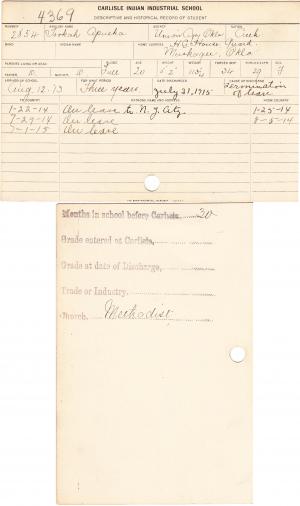 4369
CARLISLE INDIAN INDUSTRIAL SCHOOL
DESCRIPTIVE AND HISTORICAL RECORD OF STUDENT
NUMBER ENGLISH NAME AGENCY NATION
2854 Apueka Union Agy Okla Creek
INDIAN NAME HOME ADDRESS
H.C. House Guard.
Muskogee, Okla
PARENTS LIVING OR DEAD BLOOD AGE HEIGHT WEIGHT FORCED INSP. FORCED EXPR. SEX
D. D Full 20 5'2" 34 29 F
ARRIVED AT SCHOOL FOR WHAT PERIOD DATE DISCHARGED CAUSE OF DISCHARGE
Aug 12.13 Three years July 21, 1915 Termination of leave
TO COUNTRY PATRONS NAME AND ADDRESS FROM COUNTRY
1-22-14 On leave to N. Y. City 1-25-14
7-29-14 On leave 8-5-14
7-1-15 On leave
Months in school before Carlisle, 30
Grade entered at Carlisle,
Grade at date of Discharge,
Trade or Industry,
Church, Methodist